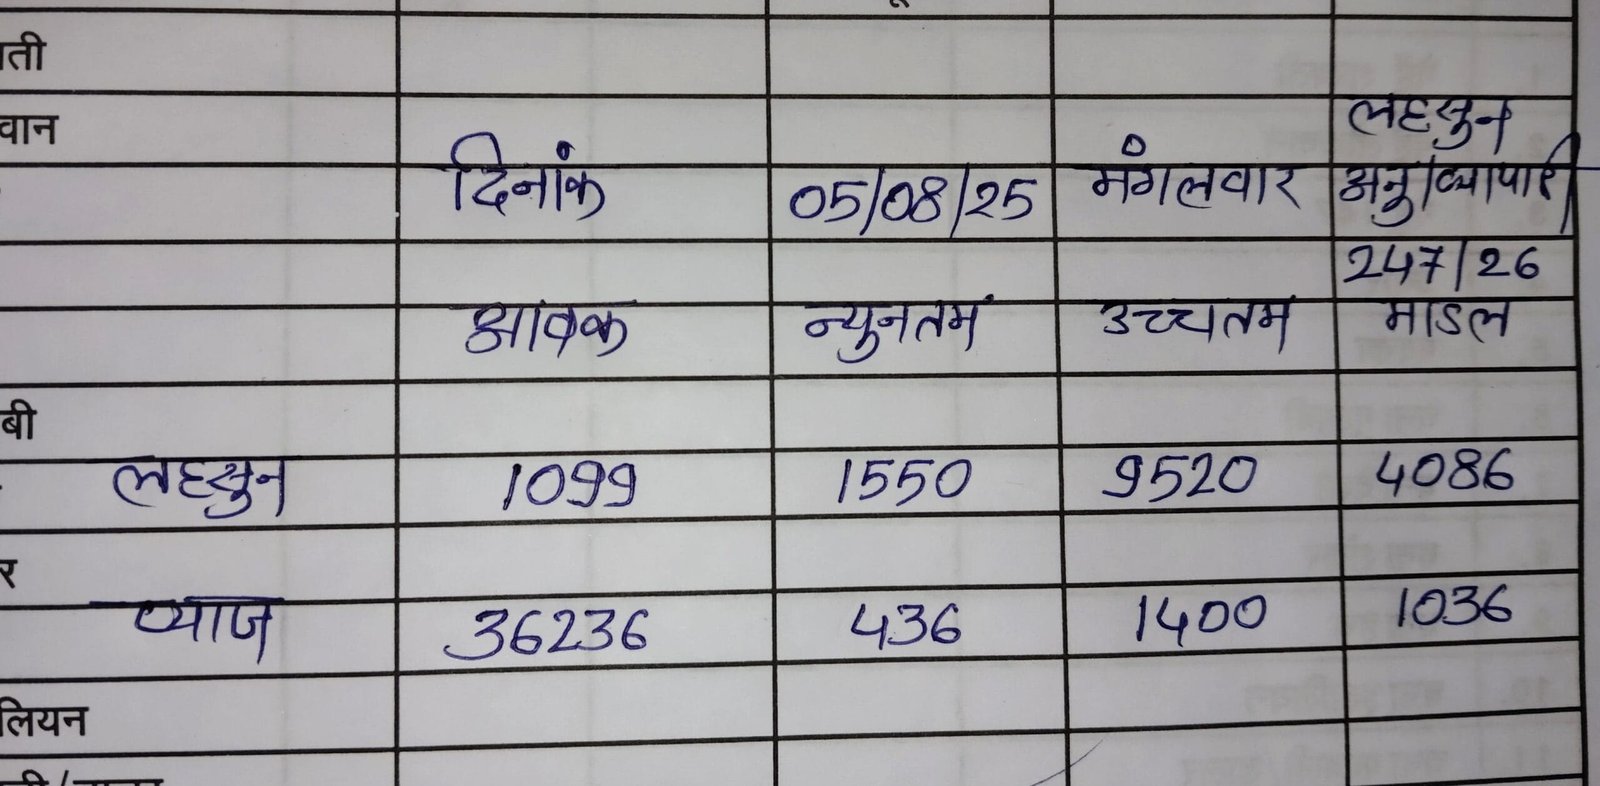 ती
वान
लहसुन
दिनांक 05/08/25 मंगलवार अनु/व्यापारी
247/26
आवक न्युनतम उच्चतम माडल
बी
लहसुन 1099 1550 9520 4086
र
प्याज 36236 436 1400 1036
लियन